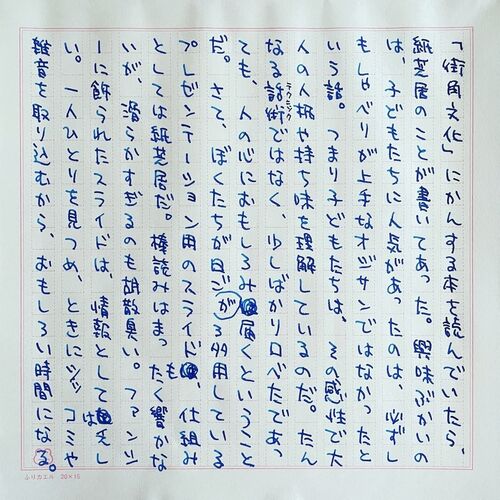 「街角文化」にかんする本を読んでいたら、
紙芝居のことが書いてあった。興味ぶかいの
は、子どもたちに人気があったのは、必ずし
もしゃべりが上手なオジサンではなかったと
いう話。つまり子どもたちは、その感性で大
人の人柄や持ち味を理解しているのだ。たん
テクニック
なる話術ではなく、少しばかり口ベたであっ
ても、人の心におもしろみが届くということ
だ。さて、ぼくたちが日ごろ多用している
プレゼンテーション用のスライドも、仕組み
としては紙芝居だ。棒読みはまったく響かな
いが、滑らかすぎるのも胡散臭い。ファンシ
ーに飾られたスライドは、情報としては乏し
い。一人ひとりを見つめ、ときにツッコミや
雑音を取り込むから、おもしろい時間になる。
ふりカエル 20×15